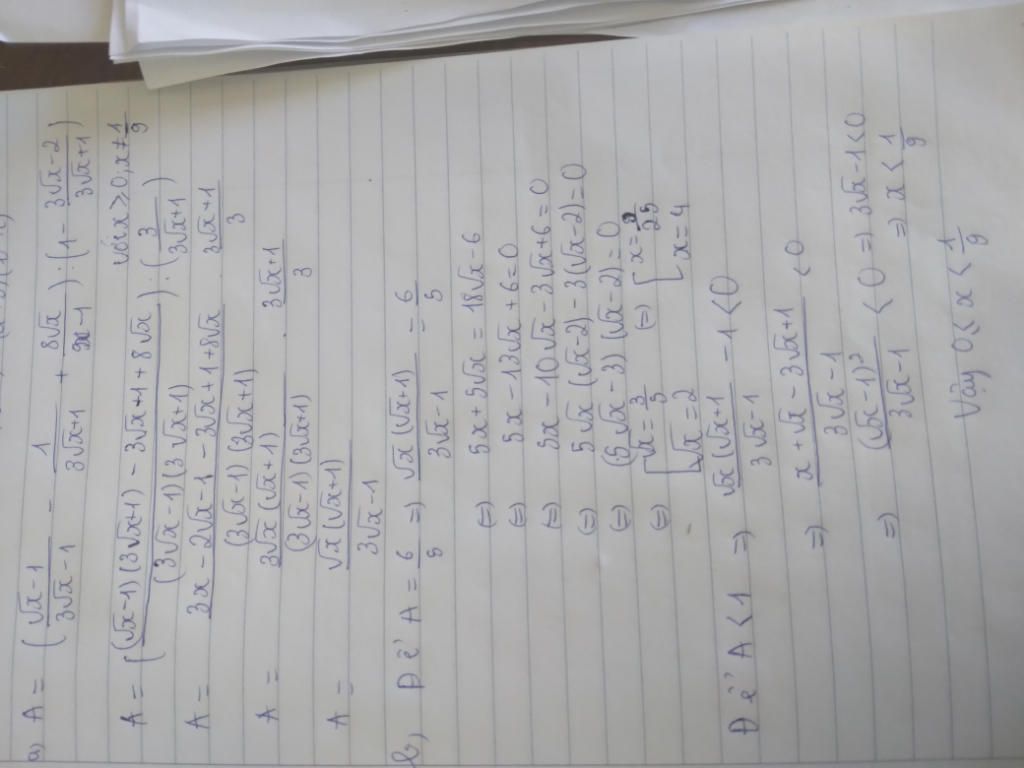 a) A = (√x-1/3√x-1 - 1/3√x+1 + 8√x/9x-1) : (1 - 3√x-2/3√x+1)
với x≥0; x≠1/9
A = [(√x-1)(3√x+1) - 3√x+1+8√x/(3√x-1)(3√x+1)] : (3/3√x+1)
A = 3x-2√x-1-3√x+1+8√x/(3√x-1)(3√x+1) . 3√x+1/3
A = 3√x(√x+1)/(3√x-1)(3√x+1) . 3√x+1/3
A = √x(√x+1)/3√x-1
b, Để A = 6/5 => √x(√x+1)/3√x-1 = 6/5
(=) 5x+5√x = 18√x-6
(=) 5x-13√x+6=0
(=) 5x-10√x-3√x+6=0
(=) 5√x(√x-2)-3(√x-2)=0
(=) (5√x-3)(√x-2)=0
(=) [√x=3/5 (=) [x=9/25
[√x=2 [x=4
Để A<1 => √x(√x+1/3√x-1 -1<0
=> x+√x-3√x+1/3√x-1 <0
=> (√x-1)²/3√x-1 <0 => 3√x-1<0
=> x<1/9
Vậy 0≤x<1/9